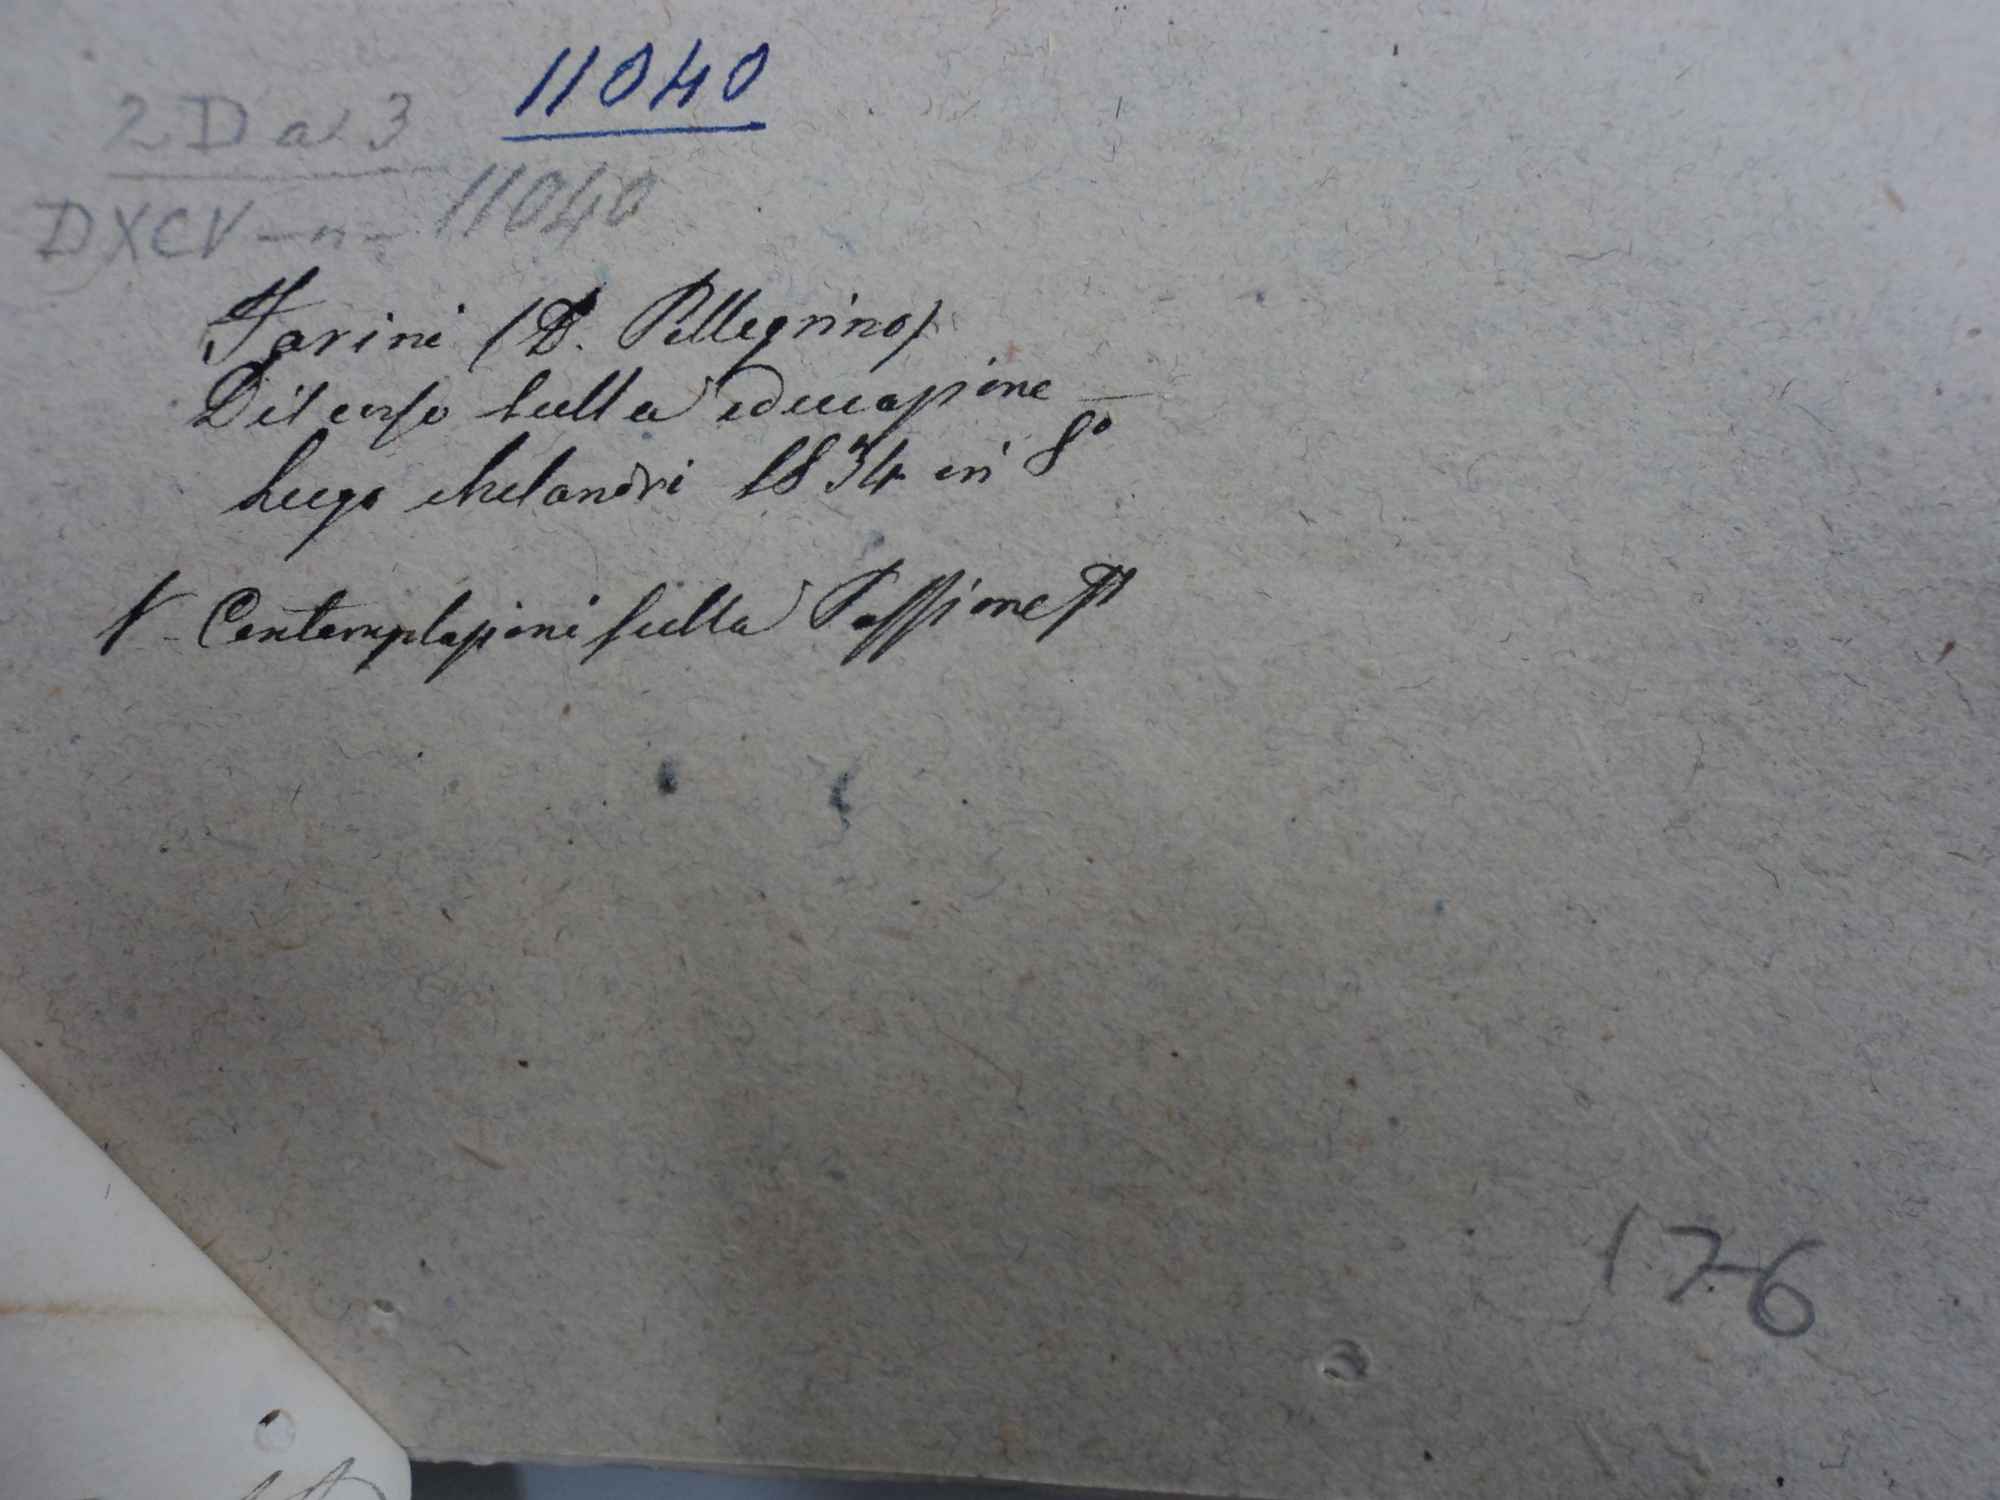 11040
2 D a 3
DXCV - n - 11040
Farini (D. Pellegrino)
Discorso sulla educazione
Lugo Melandri 1834 in 8°
V - Contemplazioni sulla Passione
176